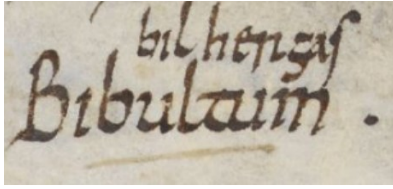 bil hengis
Bibultum .